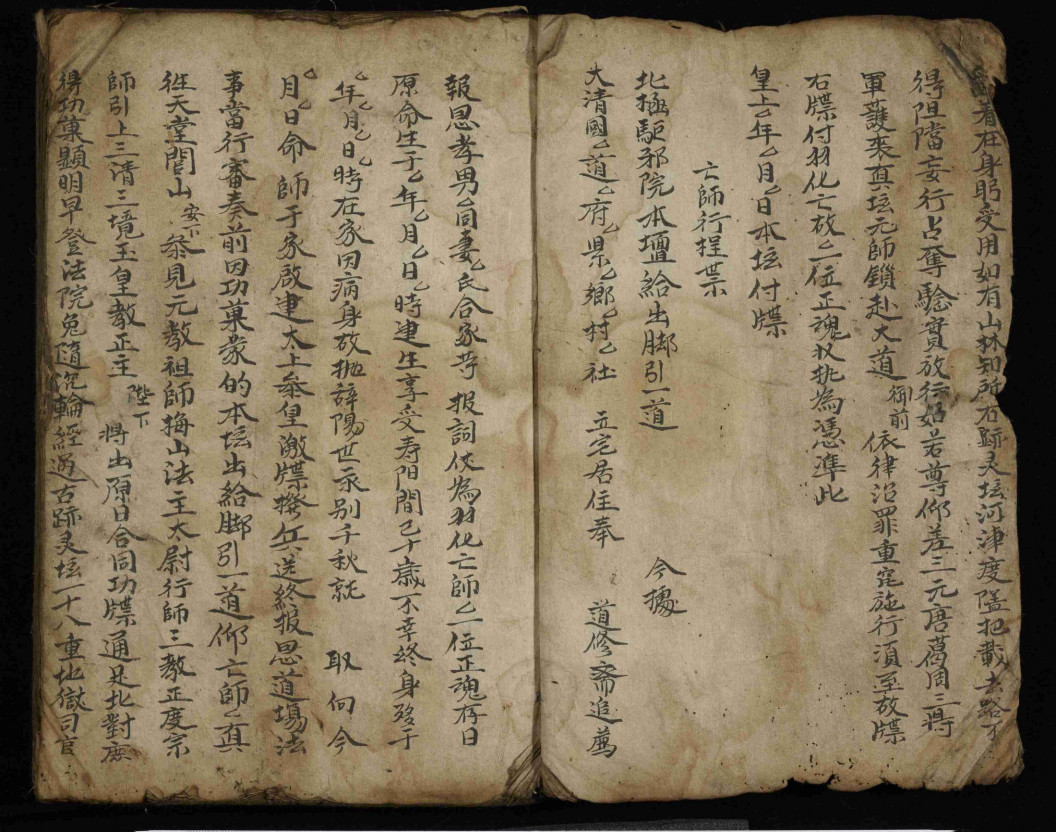 着在身躬受用如有山林知所古跡灵坛河津度隘把截去路不
得阻擋妄行占奪驗實放行如若尊仰差三元唐葛周三將
軍護裝真坛元師鎖赴大道御前依律治罪重究施行須至故牒
右牒付羽化亡故乙位正魂收执為憑準此
皇上乙年乙月乙日本坛付牒
亡師行程票
北極駈邪院本壇給出脚引一道 今據
大清國乙道乙府乙県乙鄉乙村乙社 立宅居住奉 道修齋追薦
報恩孝男乙同妻乙氏合家等 报詞伏為羽化亡師乙一位正魂存日
原命生于乙年乙月乙日乙時建生享受寿阳間已十歲不幸終身殁于
乙年乙月乙日乙時在家因病身故抛辞陽世永别千秋就 取向今
月乙日命 師于家啟建太上奉皇激牒撥兵送終报恩道場法
事當行審奏前因功菓蒙的本坛出給脚引一道仰亡師乙真
往天堂閭山安下叅見元教祖師梅山法主太尉行師三教正度宗
師引上三清三境玉皇教正主 陛下 將出原日合同功牒通足北對應
得功菓顯明早登法院免隨冤輪經過古跡灵坛一十八重地獄司官